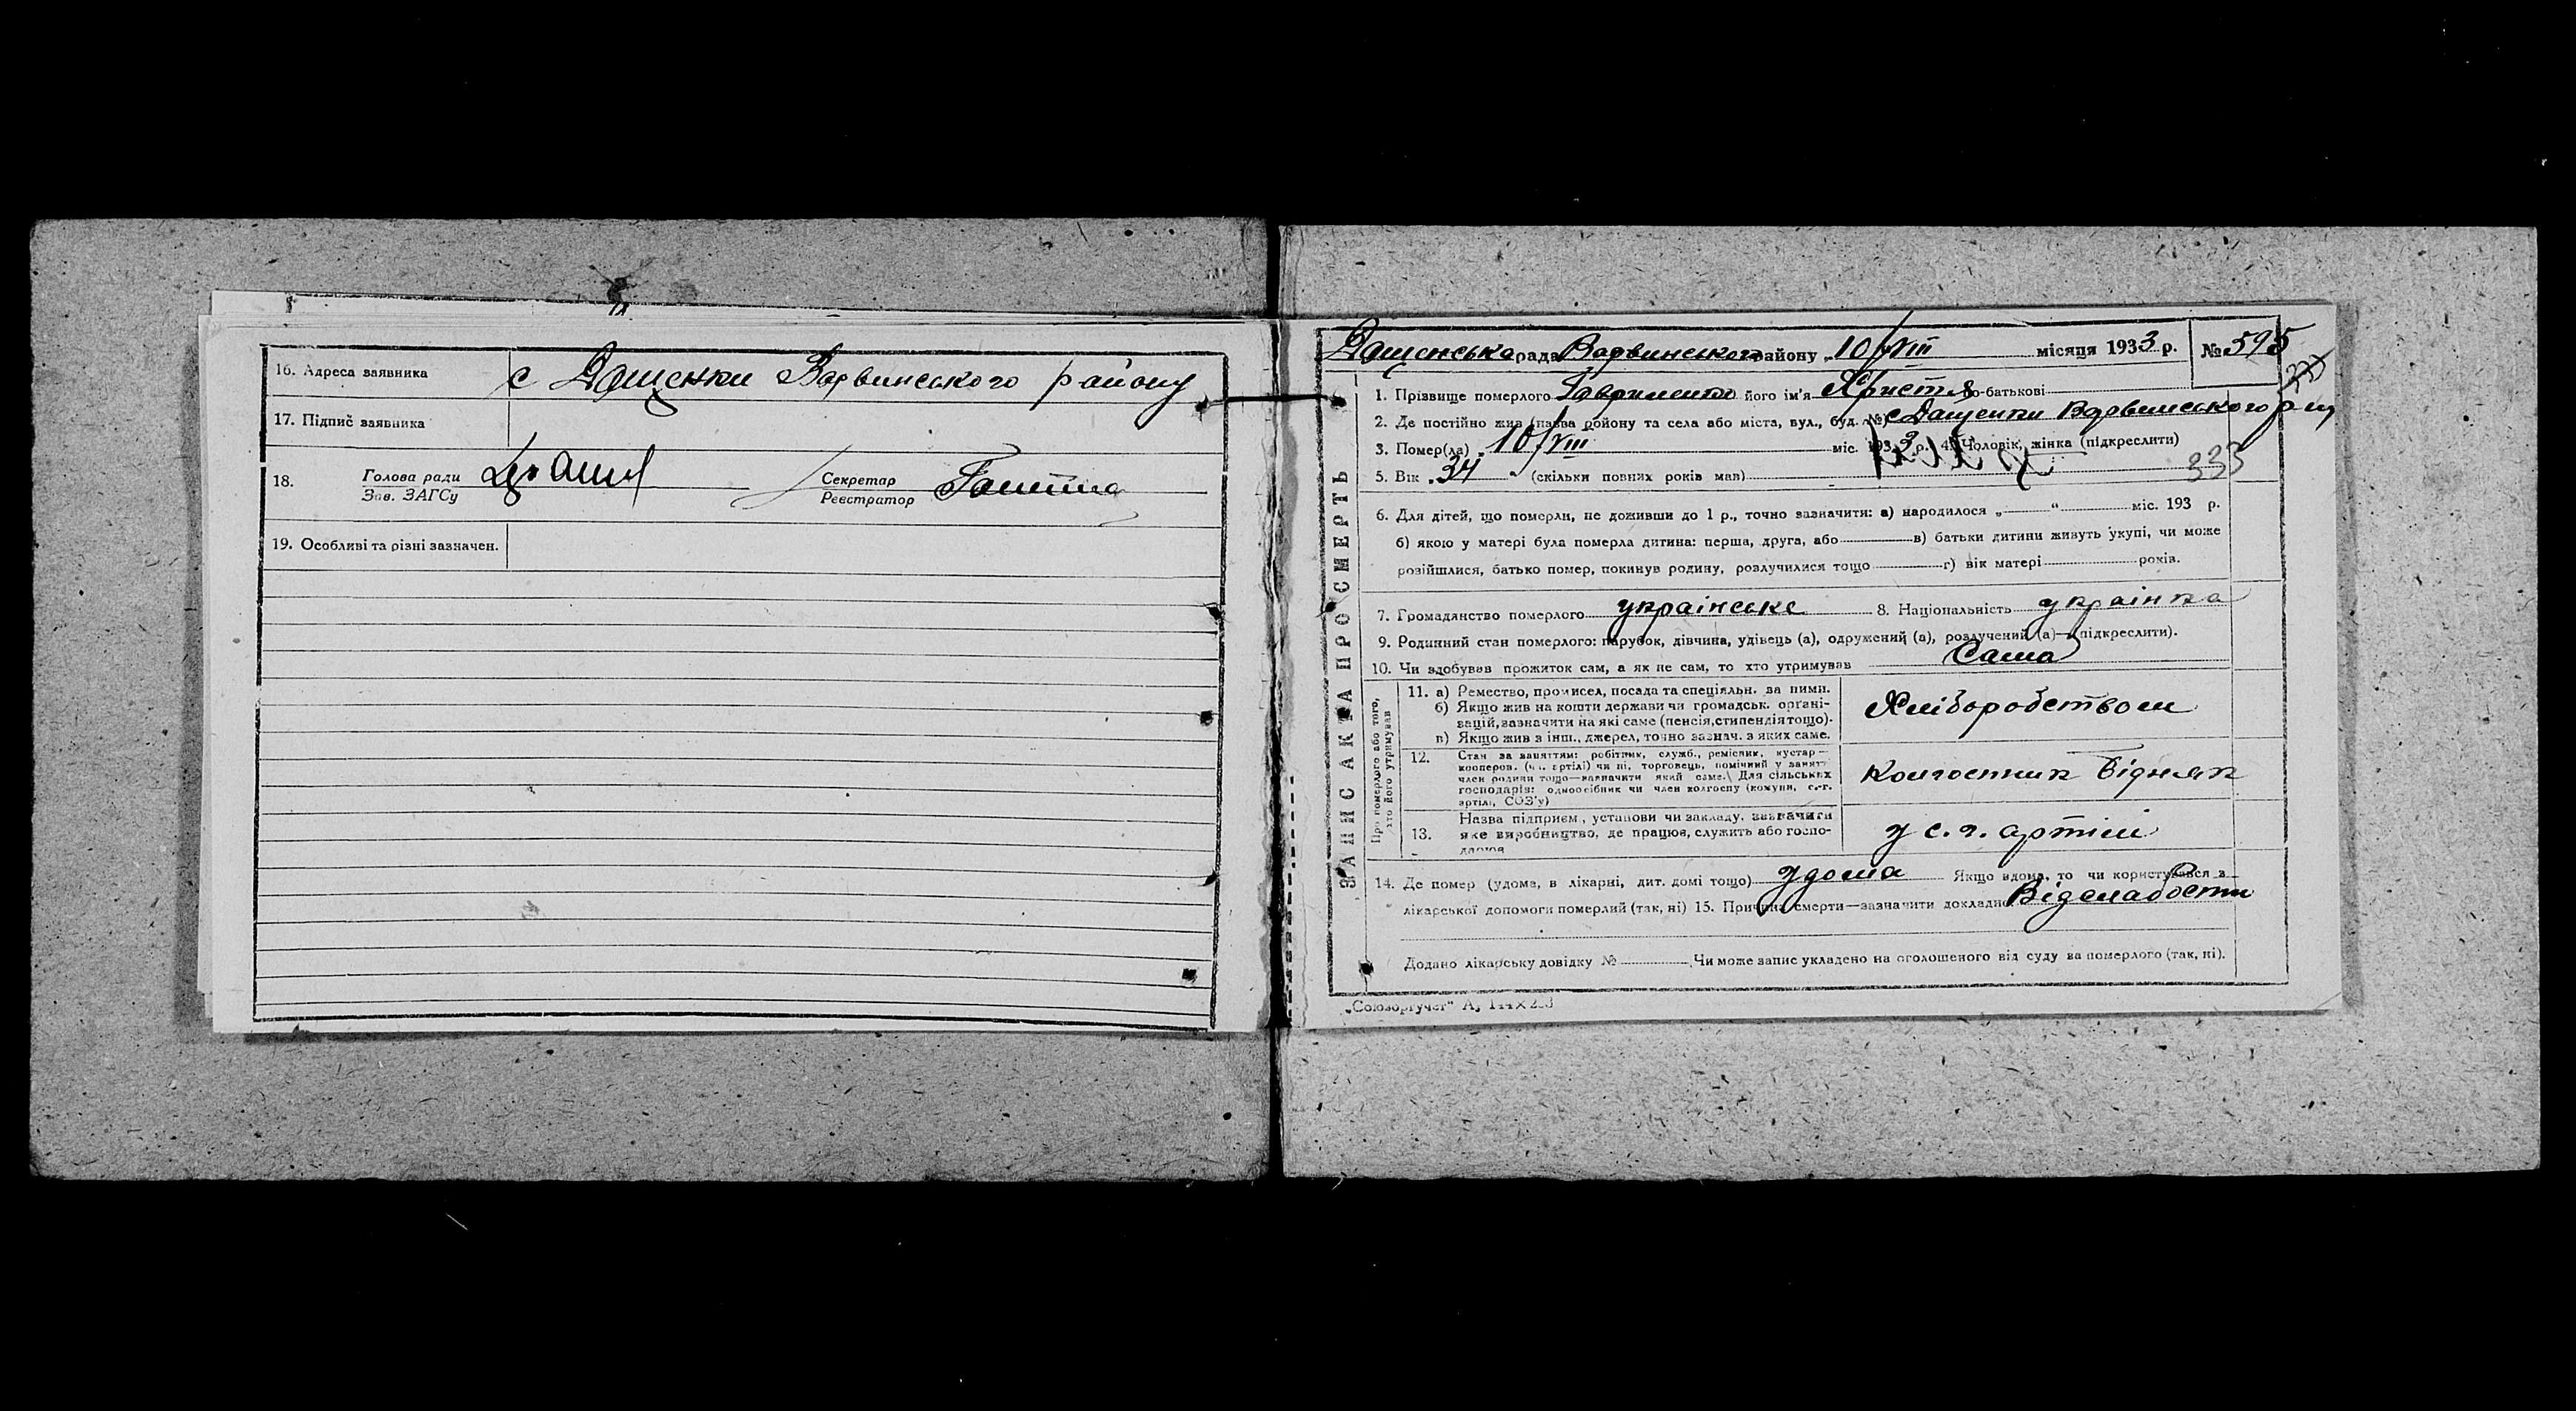 16. Адреса заявника с Дащенки Варвинського району
17. Підпис заявника
18. Голова ради
Зав. ЗАГСу
Секретар
Реєстратор
19. Особливі та різні зазначен.
ЗАПИС АКТА ПРО СМЕРТЬ
Дащенська рада Варвинського району „10/VIII місяця 1933 р. № 595
1. Прізвище померлого Гавриленко його ім'я Христя по-батькові
2. Де постійно жив (назва району та села або міста, вул., буд. №) с Дащенки Варвинського р-ну
3. Помер(ла) „10/VIII міс. 1933 р. 4. Чоловік, жінка (підкреслити)
333
5. Вік „34 “ (скільки повних років мав)
6. Для дітей, що померли, не доживши до 1 р., точно зазначити: а) народилося „ “ міс. 193 р.
б) якою у матері була померла дитина: перша, друга, або в) батьки дитини живуть укупі, чи може
розійшлися, батько помер, покинув родину, розлучилися тощо г) вік матері років.
7. Громадянство померлого українське 8. Національність українка
9. Родинний стан померлого: парубок, дівчина, удівець (а), одружений (а), розлучений (а)—(підкреслити).
10. Чи здобував прожиток сам, а як не сам, то хто утримував Сама
Про померлого або того,
хто його утримував
11. а) Ремество, промисел, посада та спеціяльн. за ними.
б) Якщо жив на кошти держави чи громадськ. органі-
зацій, зазначити на які саме (пенсія, стипендія тощо).
в) Якщо жив з інш., джерел, точно зазнач. з яких саме.
Хліборобством
12. Стан за заняттям: робітник, служб., ремісник, кустар—
кооперов. (чл. артілі) чи ні, торговець, помічний у занят.
член родини тощо—зазначити який саме. Для сільських
господарів: одноосібник чи член колгоспу (комуни, с.-г.
артілі, СОЗ'у)
Колгоспник Бідняк
13. Назва підприєм., установи чи закладу, зазначити
яке виробництво, де працює, служить або госпо-
дарює
у с. г. артілі
14. Де помер (удома, в лікарні, дит. домі тощо) удома Якщо вдома, то чи користувався з
лікарської допомоги померлий (так, ні) 15. Причина смерти—зазначити докладно Від слабости
Додано лікарську довідку № Чи може запис укладено на оголошеного від суду за померлого (так, ні).
„Союзоргучет“